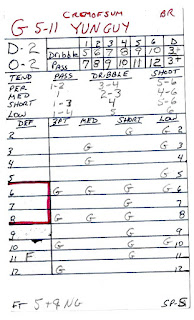 CREMOFSUM BR
G 5-11 YUNGUY
1 2 3 4 5 6 D
D-2 Dribble 5 6 7 8 9 10 3+
O-2 PASS 7 8 9 10 11 12 3+
TEND PASS DRIBBLE SHOOT
PER 1-2 3-4 5-6
MED 2-3 4-6
SHORT 1-3 4 5-6
LOW 1-4 5-6
DEF 3PT MED SHORT LOW
2 G G 2
3 G 3
4 G 4
5 G 5
6 G G G G 6
7 G 7
8 G G G 8
9 G 9
10 G G 10
11 F G 11
12 G G 12
FT 5+9 NG SP-5